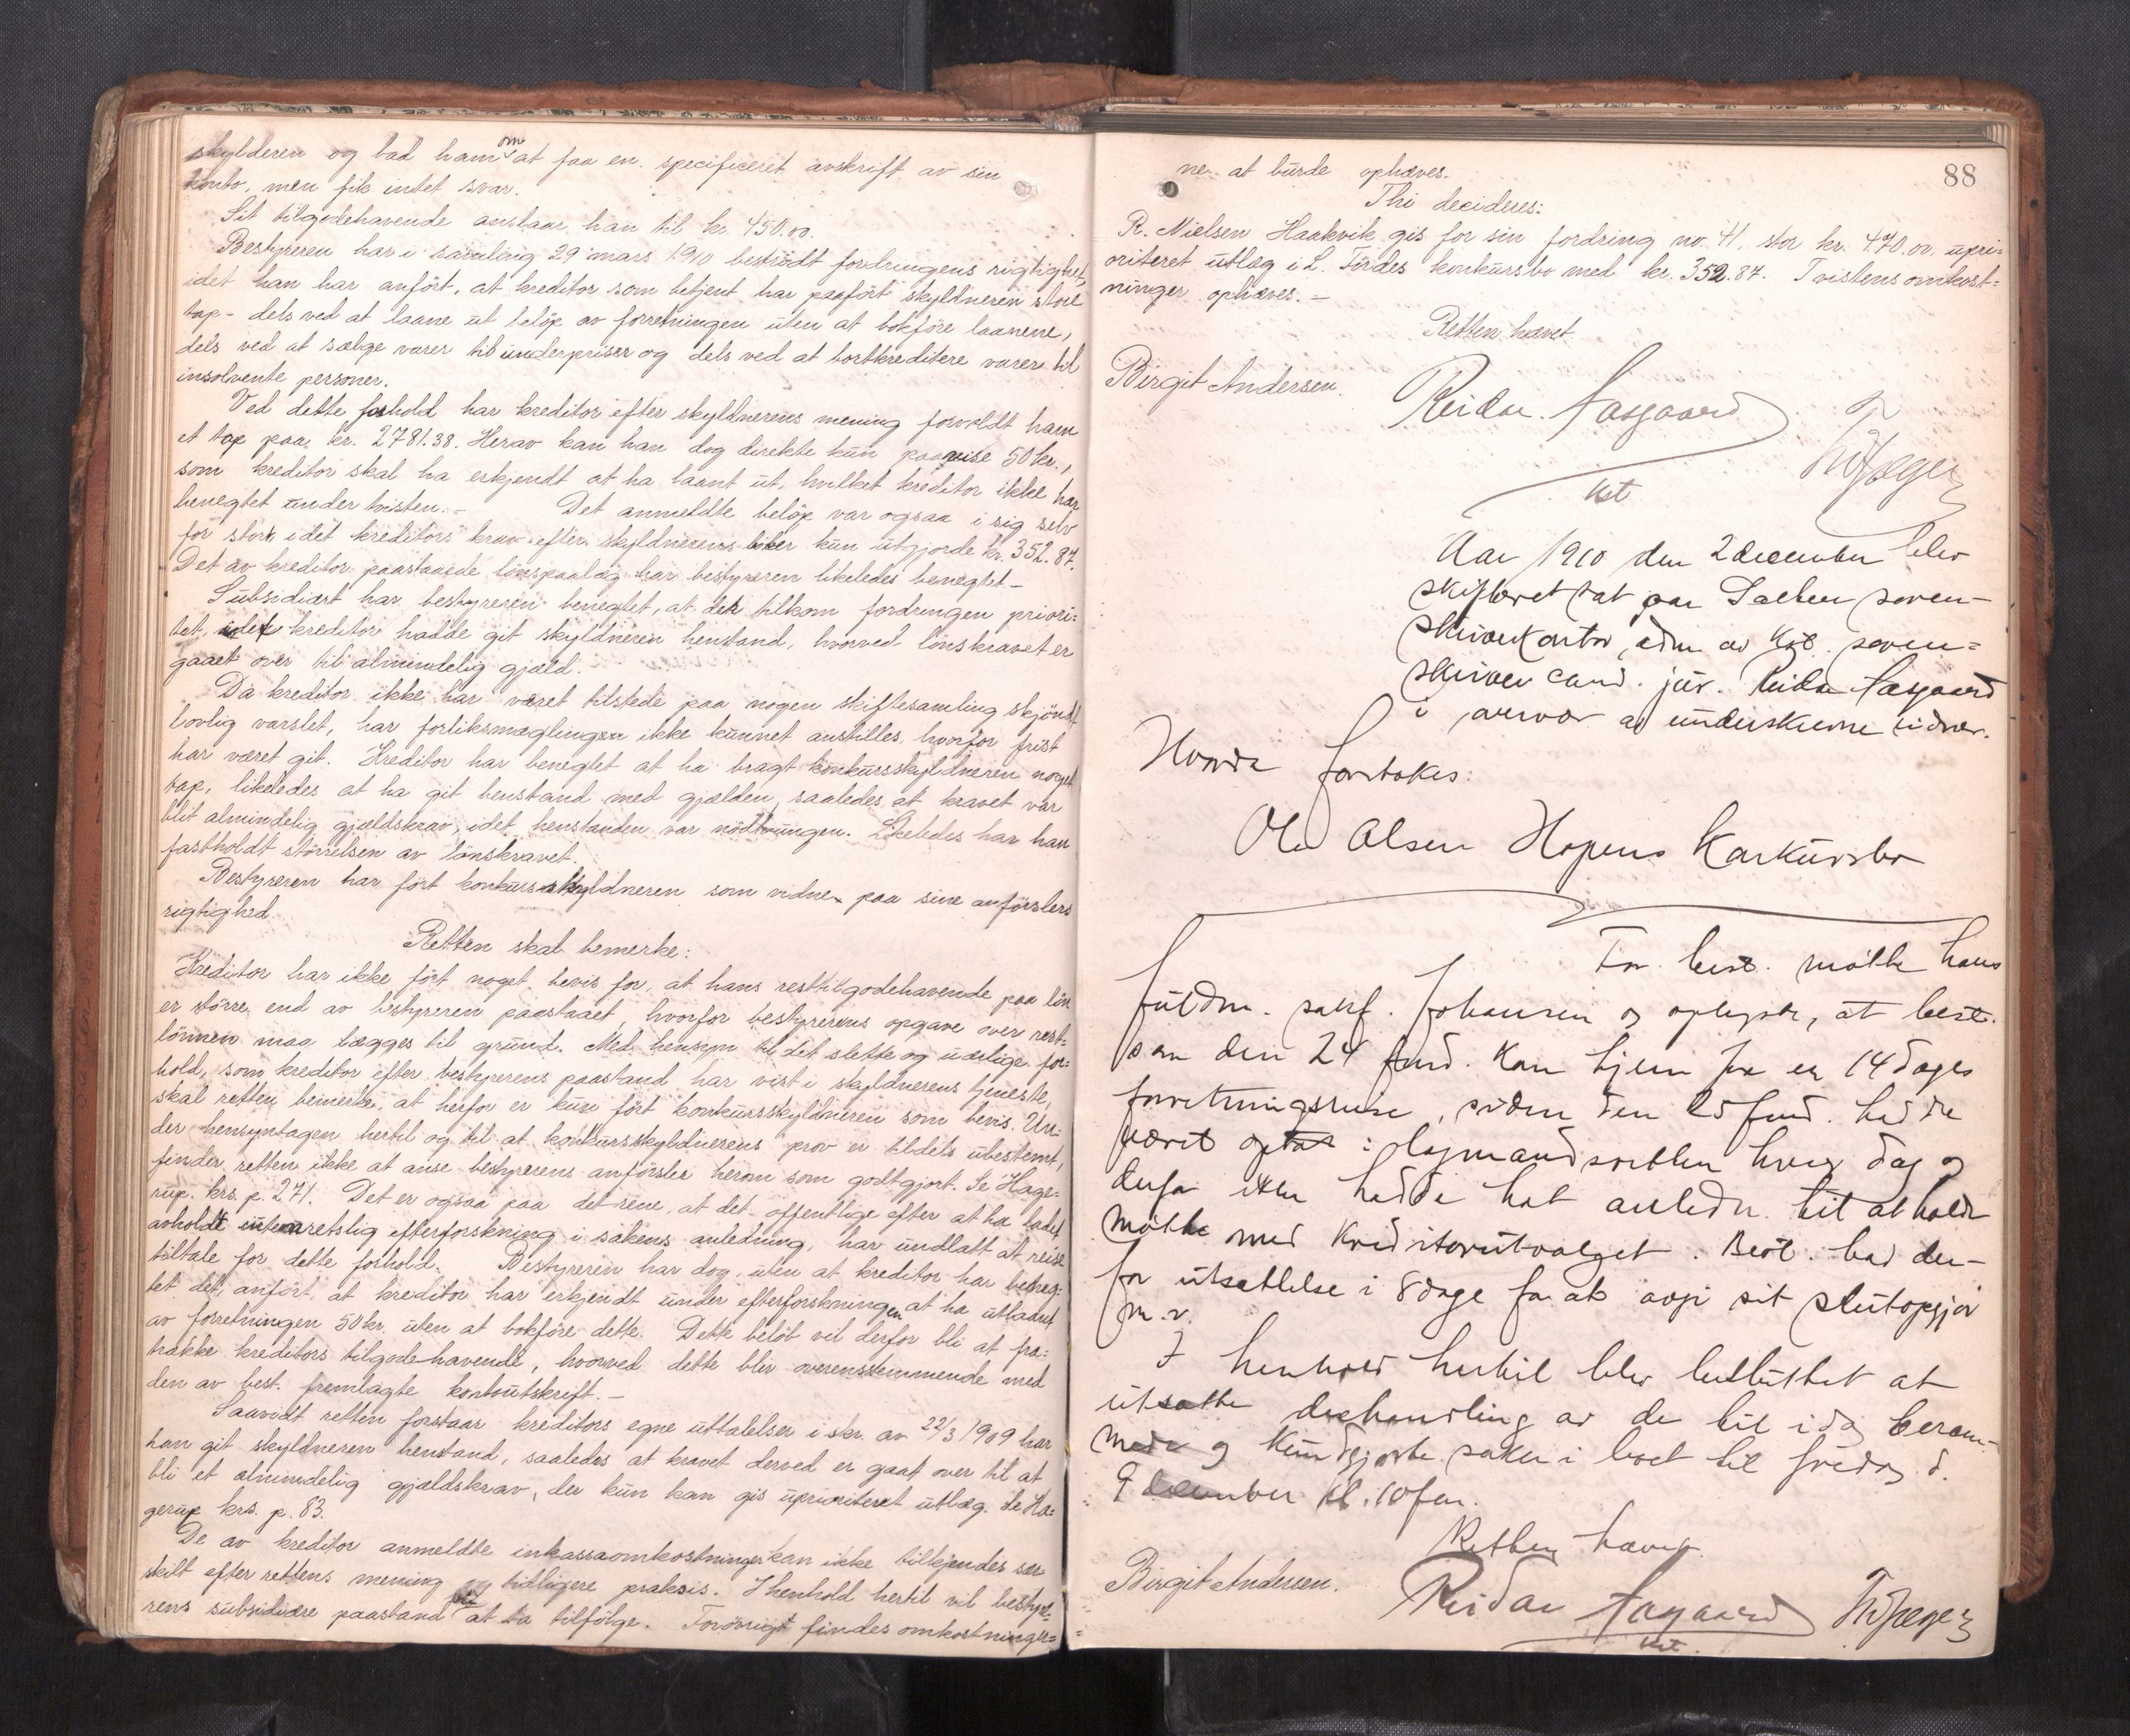 skylderen og bad ham om at faa en specificeret avskrift av sin
konto, men fik intet svar.
Sit tilgodehavende anslaar han til kr. 450.00.
Bestyreren har i samling 29 mars 1910 bestridt fordringens rigtighet,
idet han har anfört, at kreditor som betjent har paafört skyldneren store
tap - dels ved at laane ut belöp av forretningen uten at bokföre laanene,
dels ved at sælge varer til underpriser og dels ved at bortkreditere varer til
insolvente personer.
Ved dette forhold har kreditor efter skyldnerens mening forvoldt ham
et tap paa kr. 2781.38. Herav kan han dog direkte kun paavise 50 kr.,
som kreditor skal ha erkjendt at ha laant ut, hvilket kreditor ikke har
benegtet under tvisten. - Det anmeldte belöp var ogsaa i sig selv
for stort idet kreditors krav efter skyldnerens böker kun utgjorde kr. 352.87.
Det av kreditor paastaaede lönspaalæg har bestyreren likeledes benegtet -
Subsidiært har bestyreren benegtet, at der tilkom fordringen priori=
tet, idet kreditor hadde git skyldneren henstand, hvorved lönskravet er
gaaet over til almindelig gjæld.
Da kreditor ikke har været tilstede paa nogen skiftesamling skjöndt
lovlig varslet, har forliksmæglingen ikke kunnet anstilles, hvorfor frist
har været git. Kreditor har benegtet at ha bragt konkursskyldneren noget
tap, likeledes at ha git henstand med gjælden, saaledes at kravet var
blit almindelig gjældskrav, idet henstanden var nödtvungen. Likeledes har han
fastholdt störrelsen av lönskravet.
Bestyreren har fört konkursskyldneren som vidne paa sine anförslers
rigtighed.
Retten skal bemerke:
Kreditor har ikke fört noget bevis for, at hans resttilgodehavende paa lön
er större end av bestyreren paastaaet, hvorfor bestyrerens opgave over rest-
lönnen maa lægges til grund. Med hensyn til det slette og uærlige for=
hold, som kreditor efter bestyrerens paastand har vist i skyldnerens tjeneste,
skal retten bemerke, at herfor er kun fört konkursskyldneren som bevis. Un-
der hensyntagen hertil og til at konkursskyldnerens prov er tildels ubestemt,
finder retten ikke at anse bestyrerens anförsler herom som godtgjort. Se Hage-
rup. krs. p. 271. Det er ogsaa paa det rene, at det offentlige efter at ha ladet
avholdt utenretslig efterforskning i sakens anledning, har undlatt at reise
tiltale for dette forhold. Bestyreren har dog, uten at kreditor har beneg-
tet det, anfört at kreditor har erkjendt under efterforskningen at ha utlaant
av forretningen 50 kr. uten at bokföre dette. Dette belöb vil derfor bli at fra-
trække kreditors tilgodehavende, hvorved dette blir overensstemmende med
den av best. fremlagte kontoutskrift. -
Saavidt retten forstaar kreditors egne uttalelser i skr. av 22/3 1909 har
han git skyldneren henstand, saaledes at kravet derved er gaat over til at
bli et almindelig gjældskrav, der kun kan gis uprioriteret utlæg. Se Ha=
gerup krs. p. 83.
De av kreditor anmeldte inkassaomkostninger kan ikke tilkjendes sær
skilt efter rettens mening og tidligere praksis. I henhold hertil vil besty-
rens subsidiære paastand bli at ta tilfölge. Forövrigt findes omkostninger=
88
ne at burde ophæves.
Thi decideres:
R. Nielsen Haakvik gis for sin fordring no. 41, stor kr. 470.00, upri=
oriteret utlæg i L. Fördes konkursbo med kr. 352.87. Tvistens omkost=
ninger ophæves. -
Retten hævet
Birgit Andersen. Reidar Aasgaard
kst
Aar 1910 den 2 december blev
skifteret sat paa Salten soren-
skriverkontor, adm av kst. soren=
skriver cand. jur. Reidar Aasgaard
i overvær av underskrevne vidner.
Hvorda foretokes:
Ole Olsen Hopens Konkursbo
For best. mötte hans
fuldm. sakf. Johansen og oplyste, at best.
som den 24 f.md. kom hjem fra en 14 dages
forretningsreise, siden den 25 f.md. hadde
været optat i lagmandsretten hver dag og
derfor ikke hadde hat anledn. til at holde
mötte med kreditorutvalget. Best. bad der-
for utsættelse i 8 dage for at avgi sit slutopgjör
m.v.
I henhold hertil blev besluttet at
utsætte behandling av de til idag beram-
mede og kundgjorte saker i boet til fredag d.
9 december kl. 10 fm.
Retten hævet.
Birgit Andersen. Reidar Aasgaard
kst.